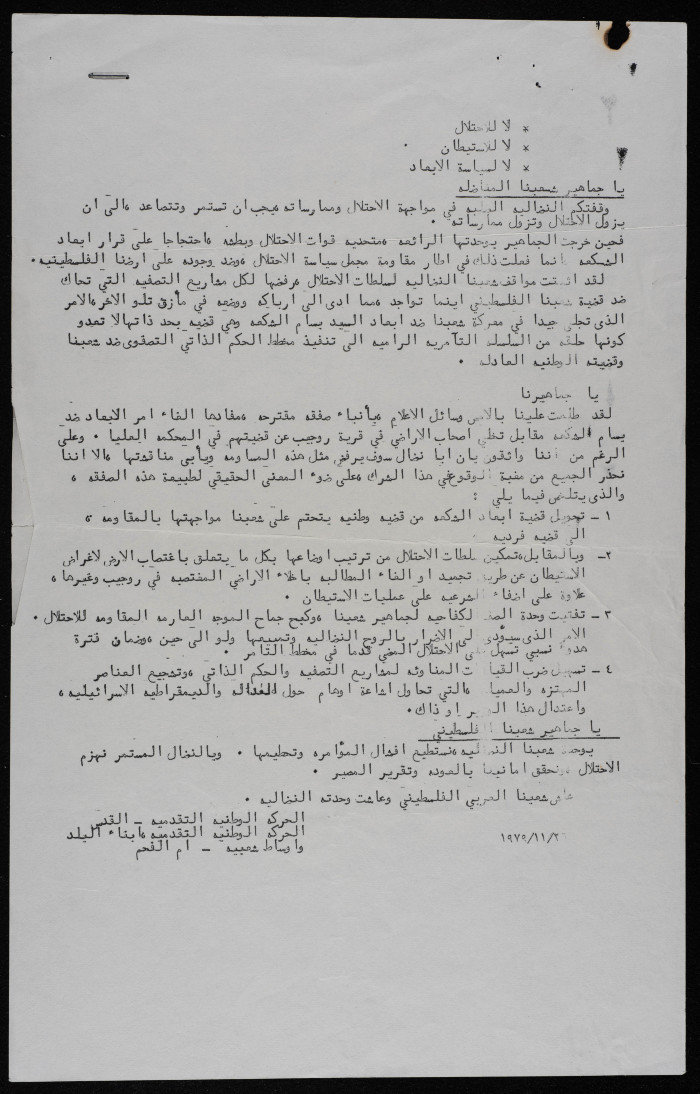 * لا للاحتلال
* لا للاستيطان .
* لا لسياسة الابعاد
يا جماهير شعبنا المناضله
وقفتكم النضاليه البطوليه في مواجهة الاحتلال وممارساته يجب ان تستمر وتتصاعد ،الى ان
يزول الاحتلال وتزول ممارساته .
فحين خرجت الجماهير بوحدتها الرائعه ،متحديه قوات الاحتلال وبطشه ،احتجاجا على قرار ابعاد
الشكعه انما فعلت ذلك في اطار مقاومة مجمل سياسة الاحتلال ،وضد وجوده على ارضنا الفلسطينيه .
لقد اثبتت مواقف شعبنا النضاليه لسلطات الاحتلال ،رفضها لكل مشاريع التصفيه التي تحاك
ضد قضية شعبنا الفلسطيني اينما تواجد ،مما ادى الى ارباكه ووضعه في مأزق تلو الاخر ،الامر
الذى تجلى جيدا في معركة شعبنا ضد ابعاد السيد بسام الشكعه وهي قضيه بحد ذاتها لا تعدو
كونها حلقه من السلسله التآمريه الراميه الى تنفيذ مخطط الحكم الذاتي التصفوى ضد شعبنا
وقضيته الوطنيه العادله .
يا جماهيرنا
لقد طلعت علينا بالامس وسائل الاعلام ،بأنباء صفقه مقترحه ،مفادها الغاء امر الابعاد ضد
بسام الشكعه مقابل تخلي اصحاب الاراضي في قرية روجيب عن قضيتهم في المحكمه العليا . وعلى
الرغم من اننا واثقون بان ابا نضال سوف يرفض مثل هذه المساومه ويأبى مناقشتها ،الا اننا
نحذر الجميع من مغبة الوقوع في هذا الشرك ،على ضوء المعنى الحقيقي لطبيعة هذه الصفقه ،
والذى يتلخص فيما يلي :
١ - تحويل قضية ابعاد الشكعه من قضيه وطنيه يتحتم على شعبنا مواجهتها بالمقاومه ،
الى قضيه فرديه
٢- وبالمقابل ،تمكين سلطات الاحتلال من ترتيب اوضاعها بكل ما يتعلق باغتصاب الارض لاغراض
الاستيطان عن طريق تجميد او الغاء المطالبه باخلاء الاراضي المغتصبه في روجيب وغيرها ،
علاوة على اضفاء الشرعيه على عمليات الاستيطان .
٣ - تفتيت وحدة الصف الكفاحيه لجماهير شعبنا ،وكبح جماح الموجه العارمه المقاومه للاحتلال .
الامر الذى سيؤدى الى الاضرار بالروح النضاليه وتمييعها ولو الى حين ،وضمان فترة
هدوء نسبي تسهل على الاحتلال المضي قدما في مخطط التآمر .
٤ - تسهيل ضرب القيادات المناوئه لمشاريع التصفيه والحكم الذاتي ،وتشجيع العناصر
المهتزه والعميله ،التي تحاول اشاعة اوهام حول العداله والديمقراطيه الاسرائيليه ،
واعتدال هذا الوزير او ذاك .
يا جماهير شعبنا الفلسطيني
بوحدة شعبنا النضاليه ،نستطيع افشال المؤامره وتحطيمها . وبالنضال المستمر نهزم
الاحتلال ،ونحقق امانينا بالعوده وتقرير المصير .
عاش شعبنا العربي الفلسطيني وعاشت وحدته النضاليه .
الحركه الوطنيه التقدميه - القدس
الحركه الوطنيه التقدميه ،ابناء البلد
واوساط شعبيه - ام الفحم
١٩٧٩/١١/٢